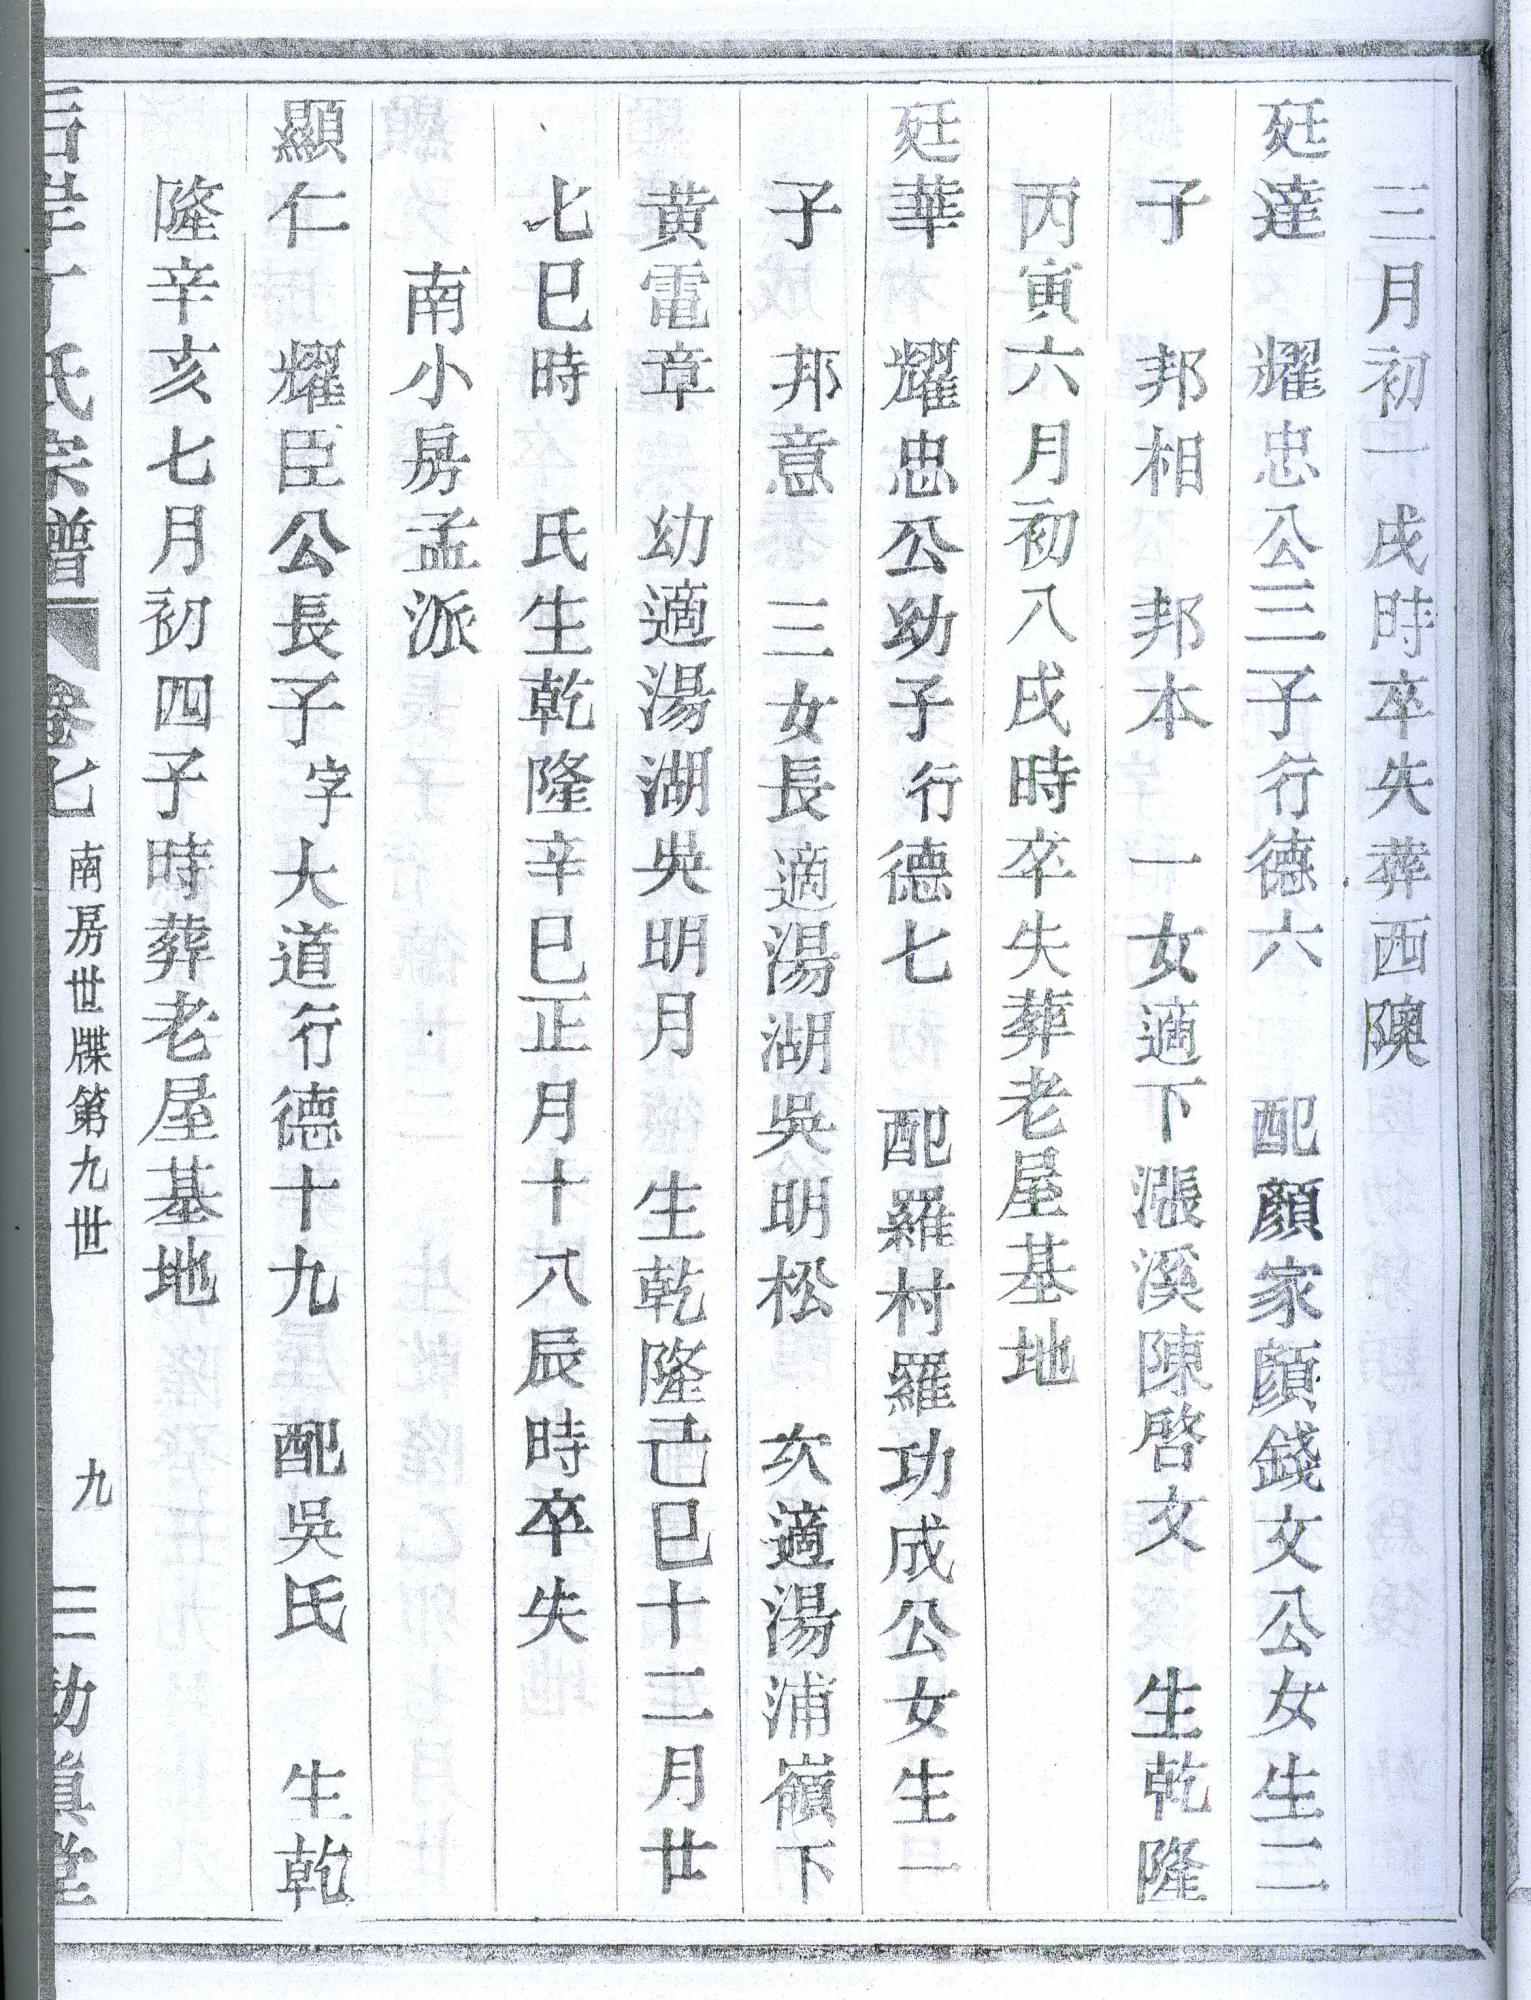 三月初一戌時卒失葬西隩
廷達　耀忠公三子行德六　配顏家顏錢文公女生二
子　邦相　邦本　一女適下漲溪陳啓文　生乾隆
丙寅六月初八戌時卒失葬老屋基地
廷華　耀忠公幼子行德七　配羅村羅功成公女生一
子　邦意　三女長適湯湖吳明松　次適湯浦嶺下
黃電章　幼適湯湖吳明月　生乾隆己巳十二月廿
七巳時　氏生乾隆辛巳正月十八辰時卒失
南小房孟派
顯仁　耀臣公長子字大道行德十九　配吳氏　生乾
隆辛亥七月初四子時葬老屋基地
氏宗譜　卷七　南房世牒第九世　九